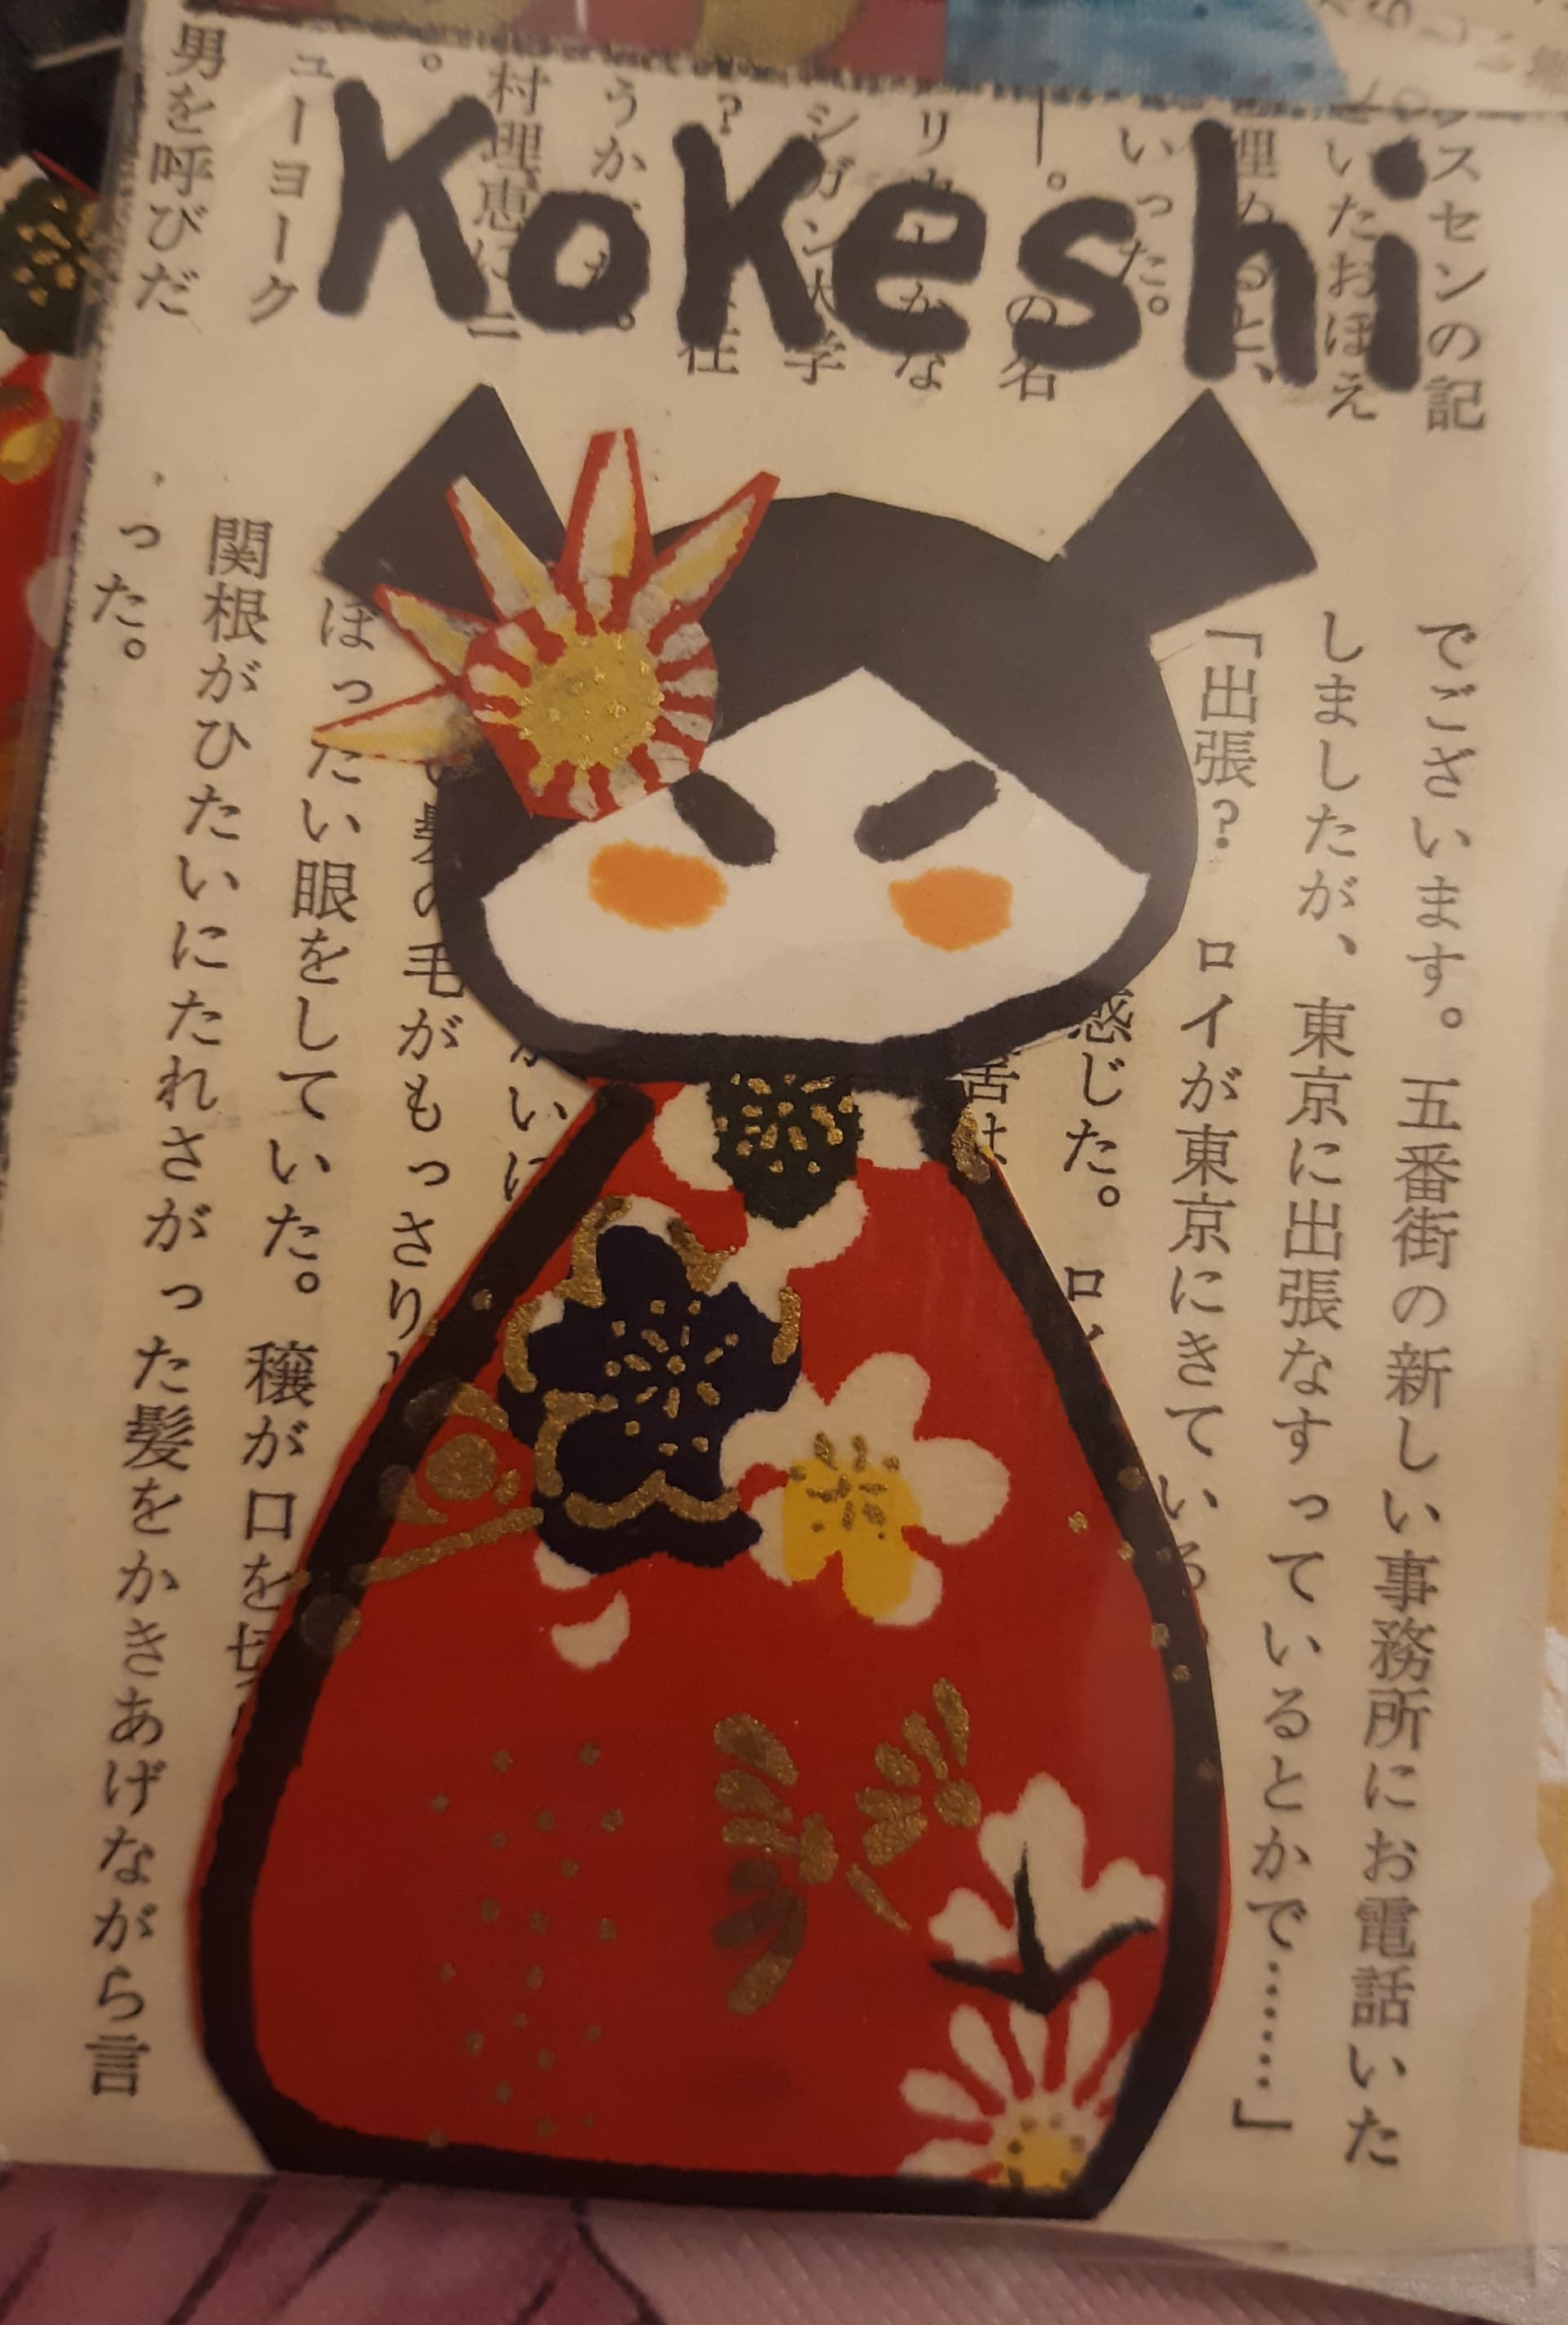 Kokeshi
スセンの記
いたおぼえ
いった。
の名
シガン大学
村理恵にニ
ューヨーク
男を呼びだ
でございます。五番街の新しい事務所にお電話いた
しましたが、東京に出張なすっているとかで……」
「出張? ロイが東京にきている
感じた。ロイ
髪の毛がもっさり
ぼったい眼をしていた。穣が口を切
関根がひたいにたれさがった髪をかきあげながら言
った。